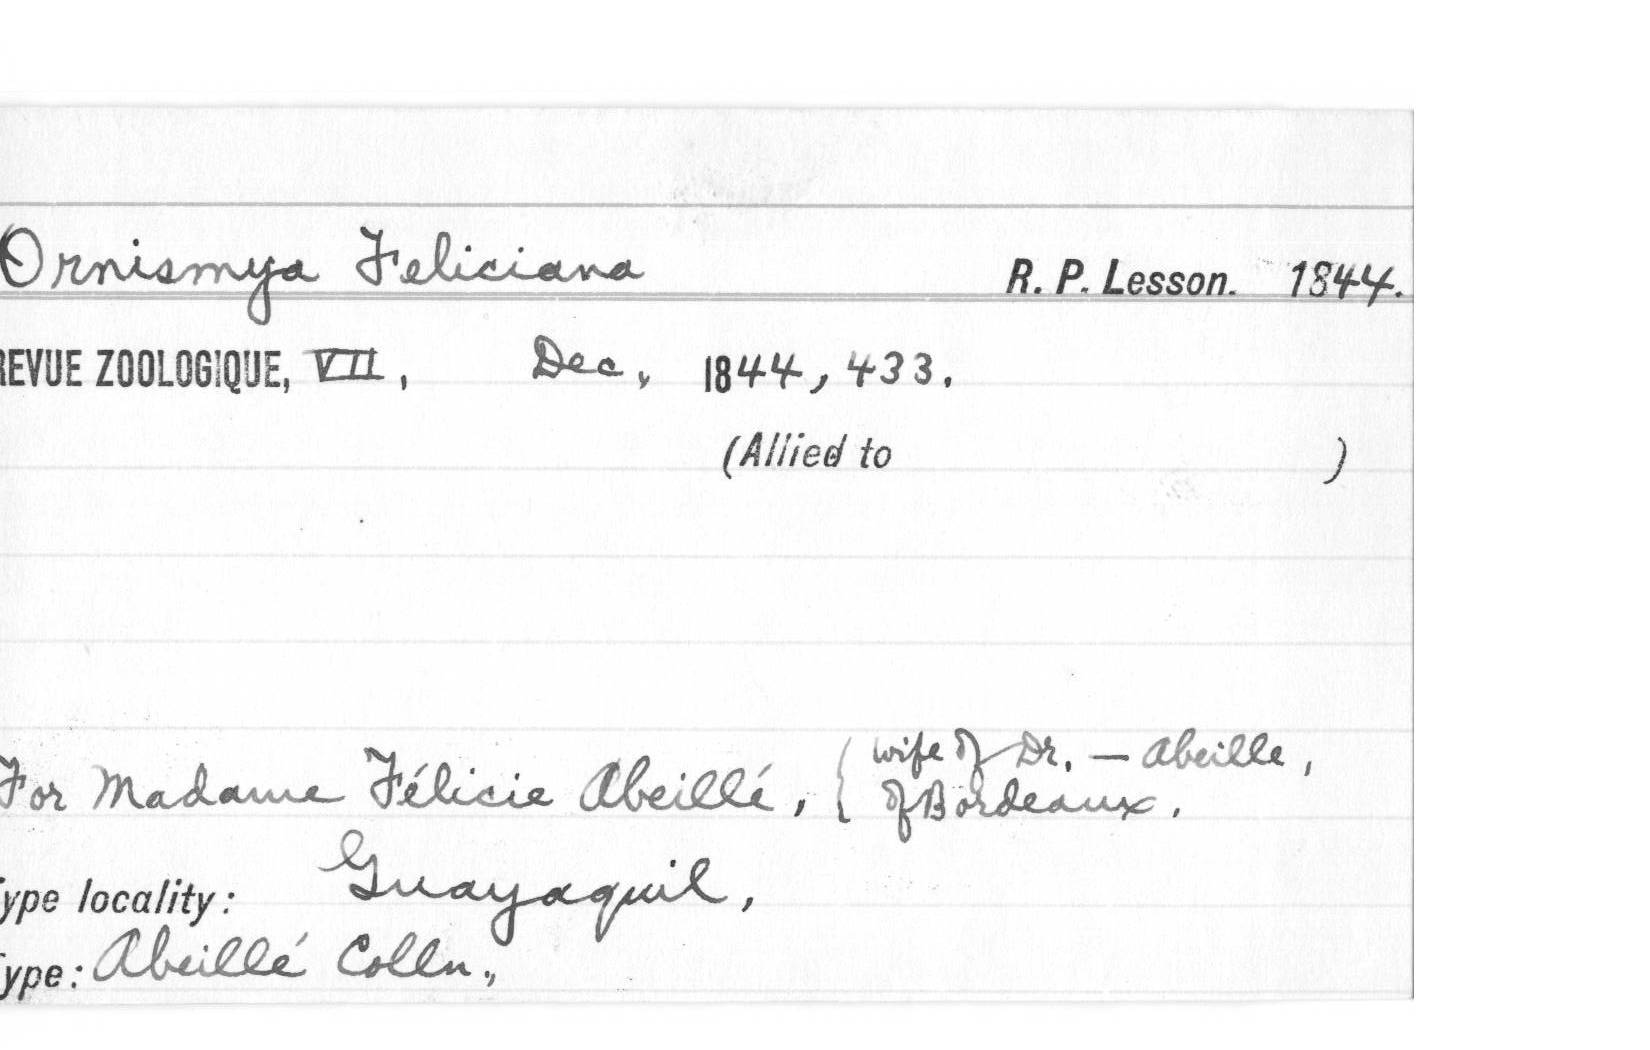 Ornismya Feliciana R. P. Lesson. 1844.
REVUE ZOOLOGIQUE, VII, Dec., 1844, 433.
(Allied to )
For Madame Félicie Abeillé, { wife of Dr. — Abeille,
of Bordeaux.
Type locality: Guayaquil,
Type: Abeillé Colln.,